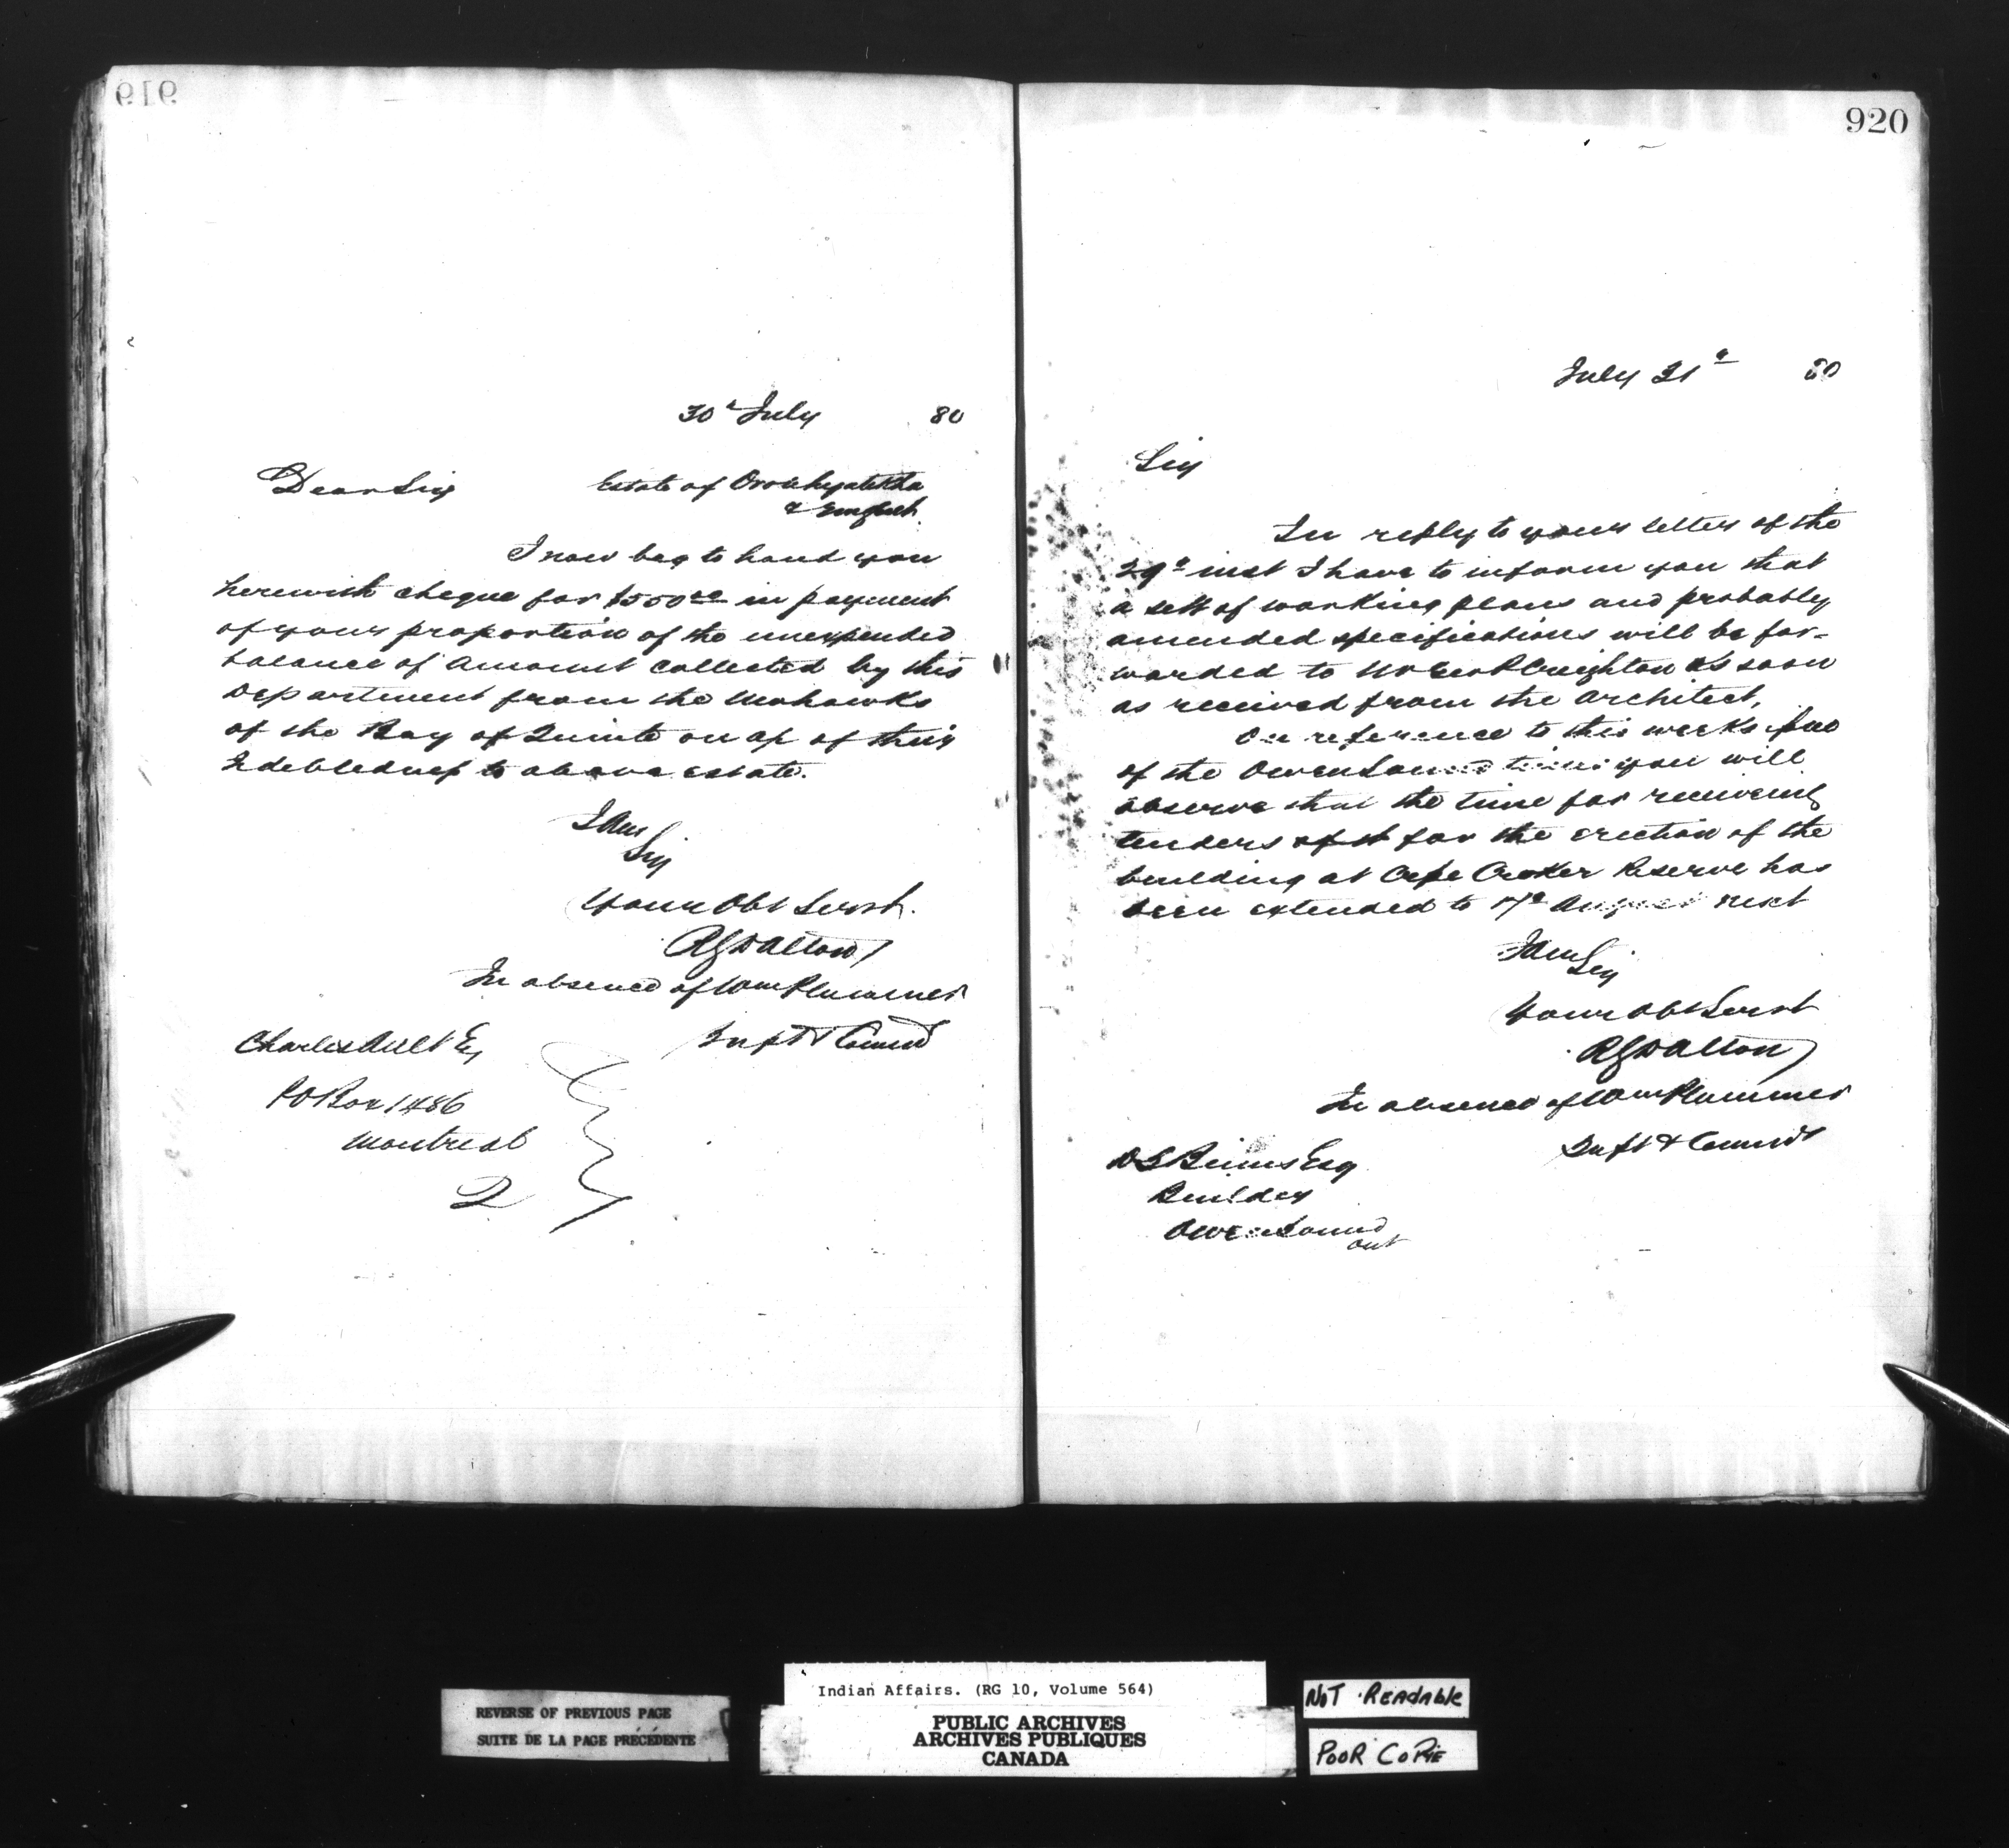 919
30th July 80
Dear Sir Estate of Oronhyatekha
&
I now beg to hand you
herewith cheque for $500 00 in payment
of your proportion of the unexpended
balance of amount collected by this
Department from the Mohawks
of the Bay of Quinte on a/c of their
Indebtedness to above estate.
I Am
Sir
Your Obt Servt.
RG Dalton
In absence of Wm Plummer
Supt & Commr
Charles Ault Esq
PO Box 1486
Montreal
Q
920
July 31st 80
Sir
In reply to your letter of the
29th inst I have to inform you that
a sett of working plans and probably
amended specifications will be for-
warded to Creighton as soon
as received from the Architect,
On reference to this weeks issue
of the Owen Sound times you will
observe that the time for receiving
tenders for the erection of the
building at Cape Croker Reserve has
been extended to 17th August next
I am Sir
Your Obt Servt
RG Dalton
In absence of Wm Plummer
Supt & Commr
Binns Esq
Builder
Owen Sound
Ont
REVERSE OF PREVIOUS PAGE
SUITE DE LA PAGE PRÉCÉDENTE
Indian Affairs. (RG 10, Volume 564)
PUBLIC ARCHIVES
ARCHIVES PUBLIQUES
CANADA
NOT READABLE
POOR COPIE